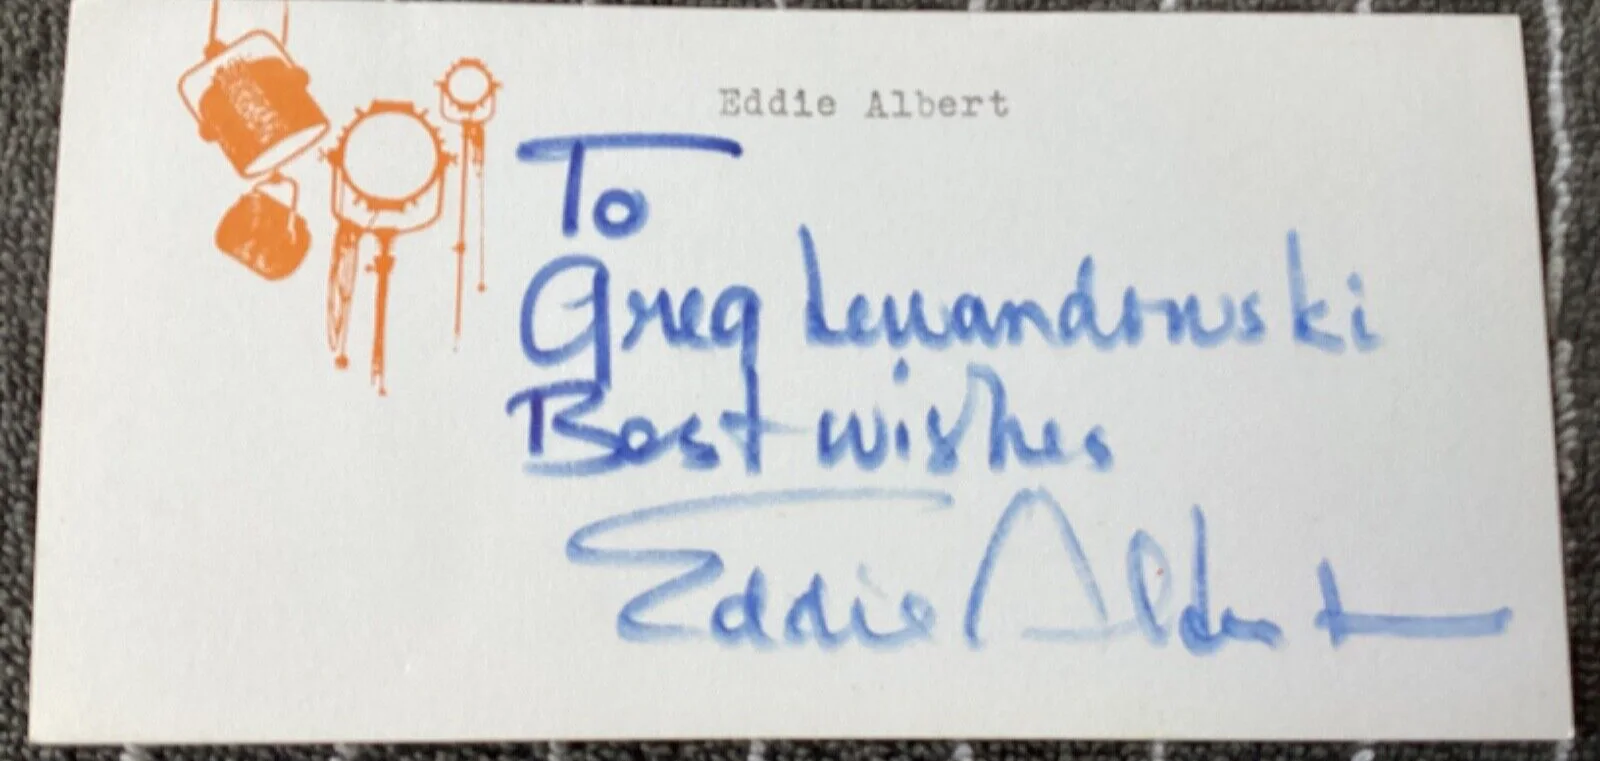 Eddie Albert
To
Greg Lewandowski
Best wishes
Eddie Albert